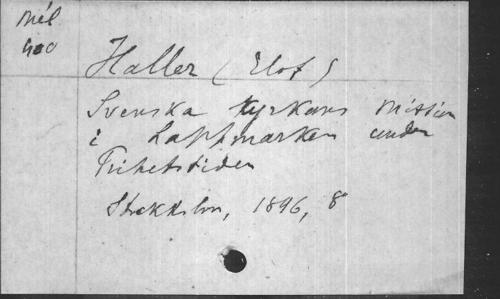 Mél
400
Haller (Elof)
Svenska Kyrkans Mission
i Lappmarken under
Frihetstiden
Stockholm, 1896, 8°